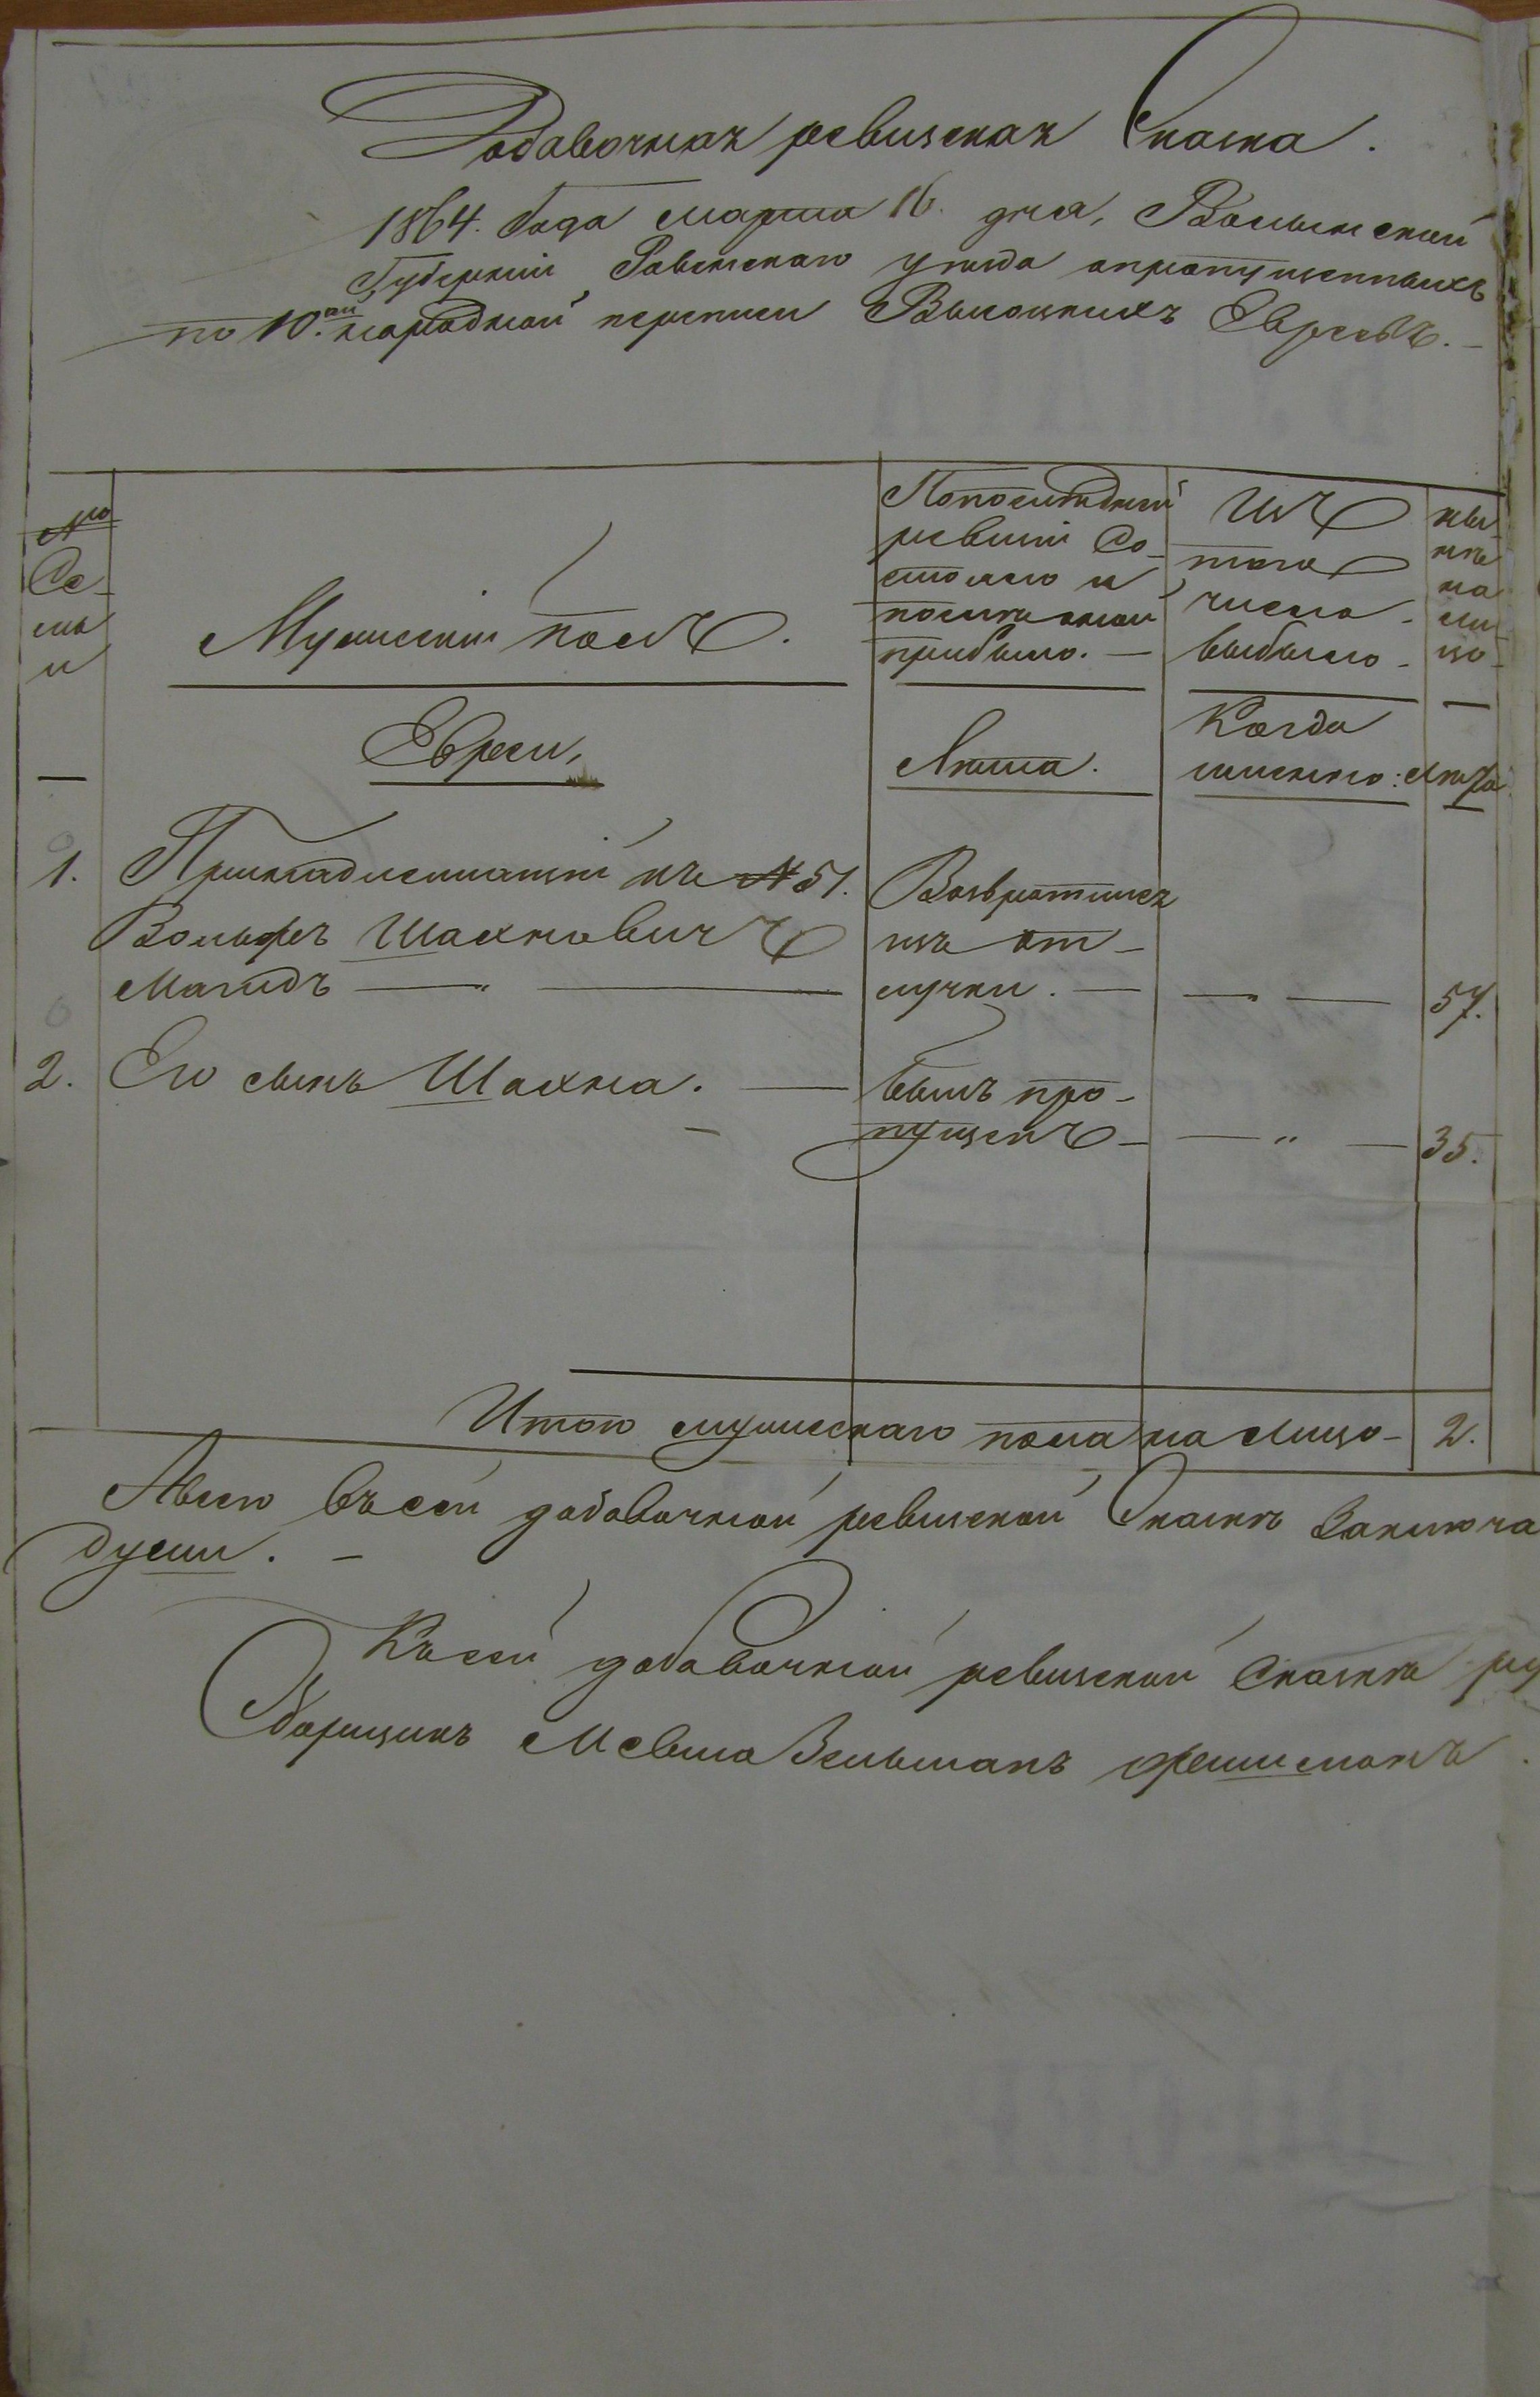 Добавочная ревизская Сказка.
1864. Года марта 16. дня, Волынской
Губерніи Ровенскаго уезда опропущенныхъ
по 10.ой народной переписи Высоцкихъ Евреевъ.
№ Семьи
Мужескій полъ.
Попоследней ревизіи Состояло и после оной прибыло.
Изъ того числа выбыло
ныне на лицо
Евреи,
Лета.
Когда имянно:
Лета
1. Принадлежащій къ № 51. Возвратился
Вольфъ Шахновичъ изъ от-
Магидъ — " — лучки. — — " — 57.
2. Его сынъ Шахна. — былъ про-
пущенъ — — " — 35.
Итого мужескаго пола на лицо - 2.
Авсего въсей добавочной ревизской Сказке Заключа
души. —
Късей добавочной ревизской Сказке ру
Сборщикъ Зельманъ